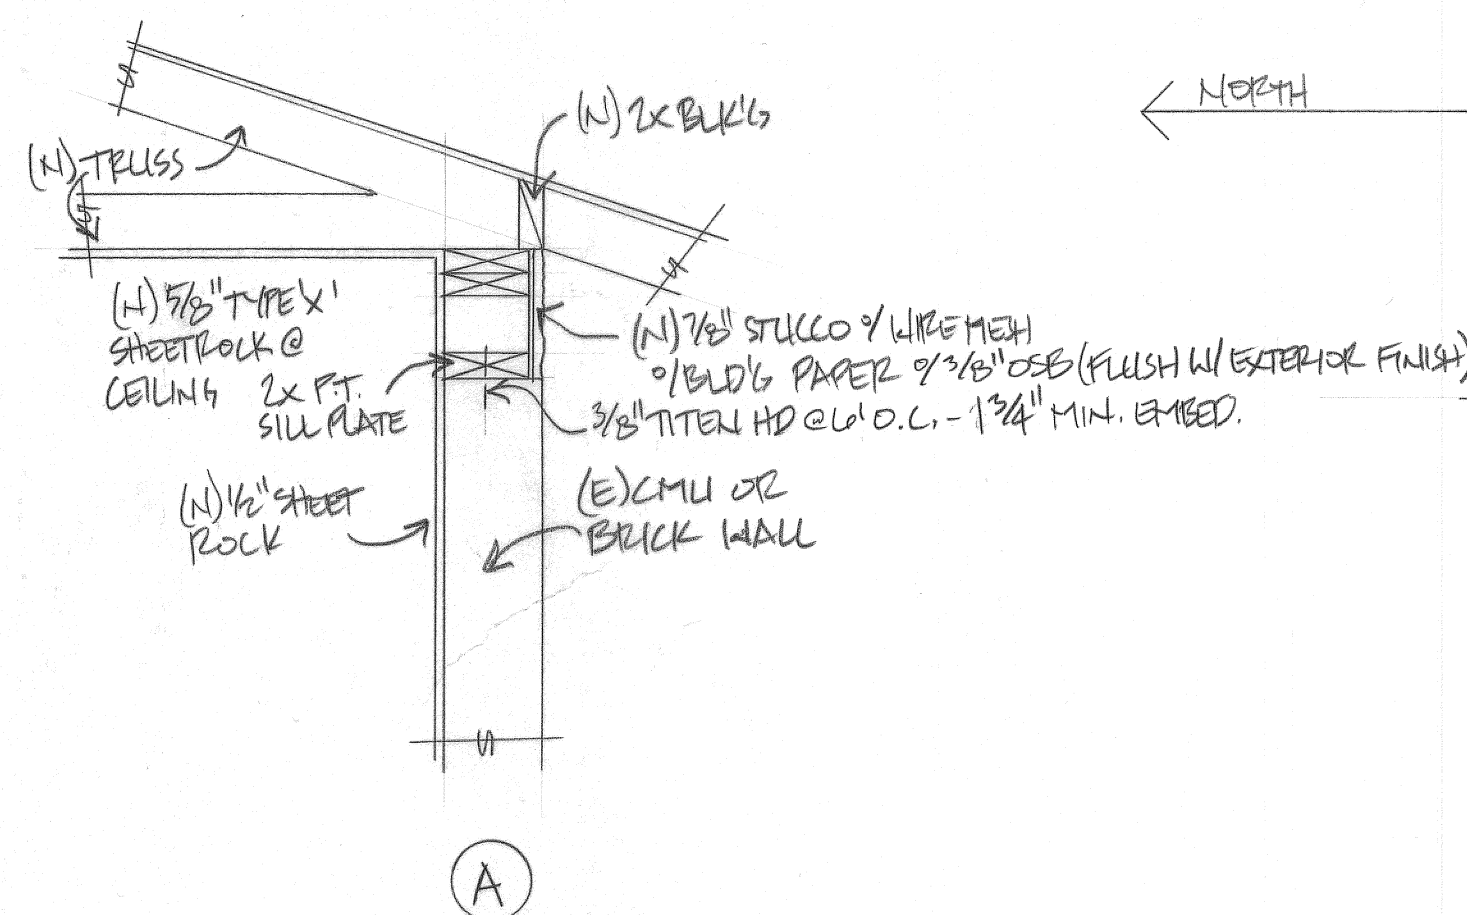 NORTH
(N) 2X BLK'G
(N) TRUSS
(N) 5/8" TYPE 'X'
SHEETROCK @
CEILING
2X P.T.
SILL PLATE
(N) 7/8" STUCCO O/ WIRE MESH
O/ BLD'G PAPER O/ 3/8" OSB (FLUSH W/ EXTERIOR FINISH)
3/8" TITEN HD @ 6' O.C. - 1 3/4" MIN. EMBED.
(N) 1/2" SHEET
ROCK
(E) CMU OR
BRICK WALL
A